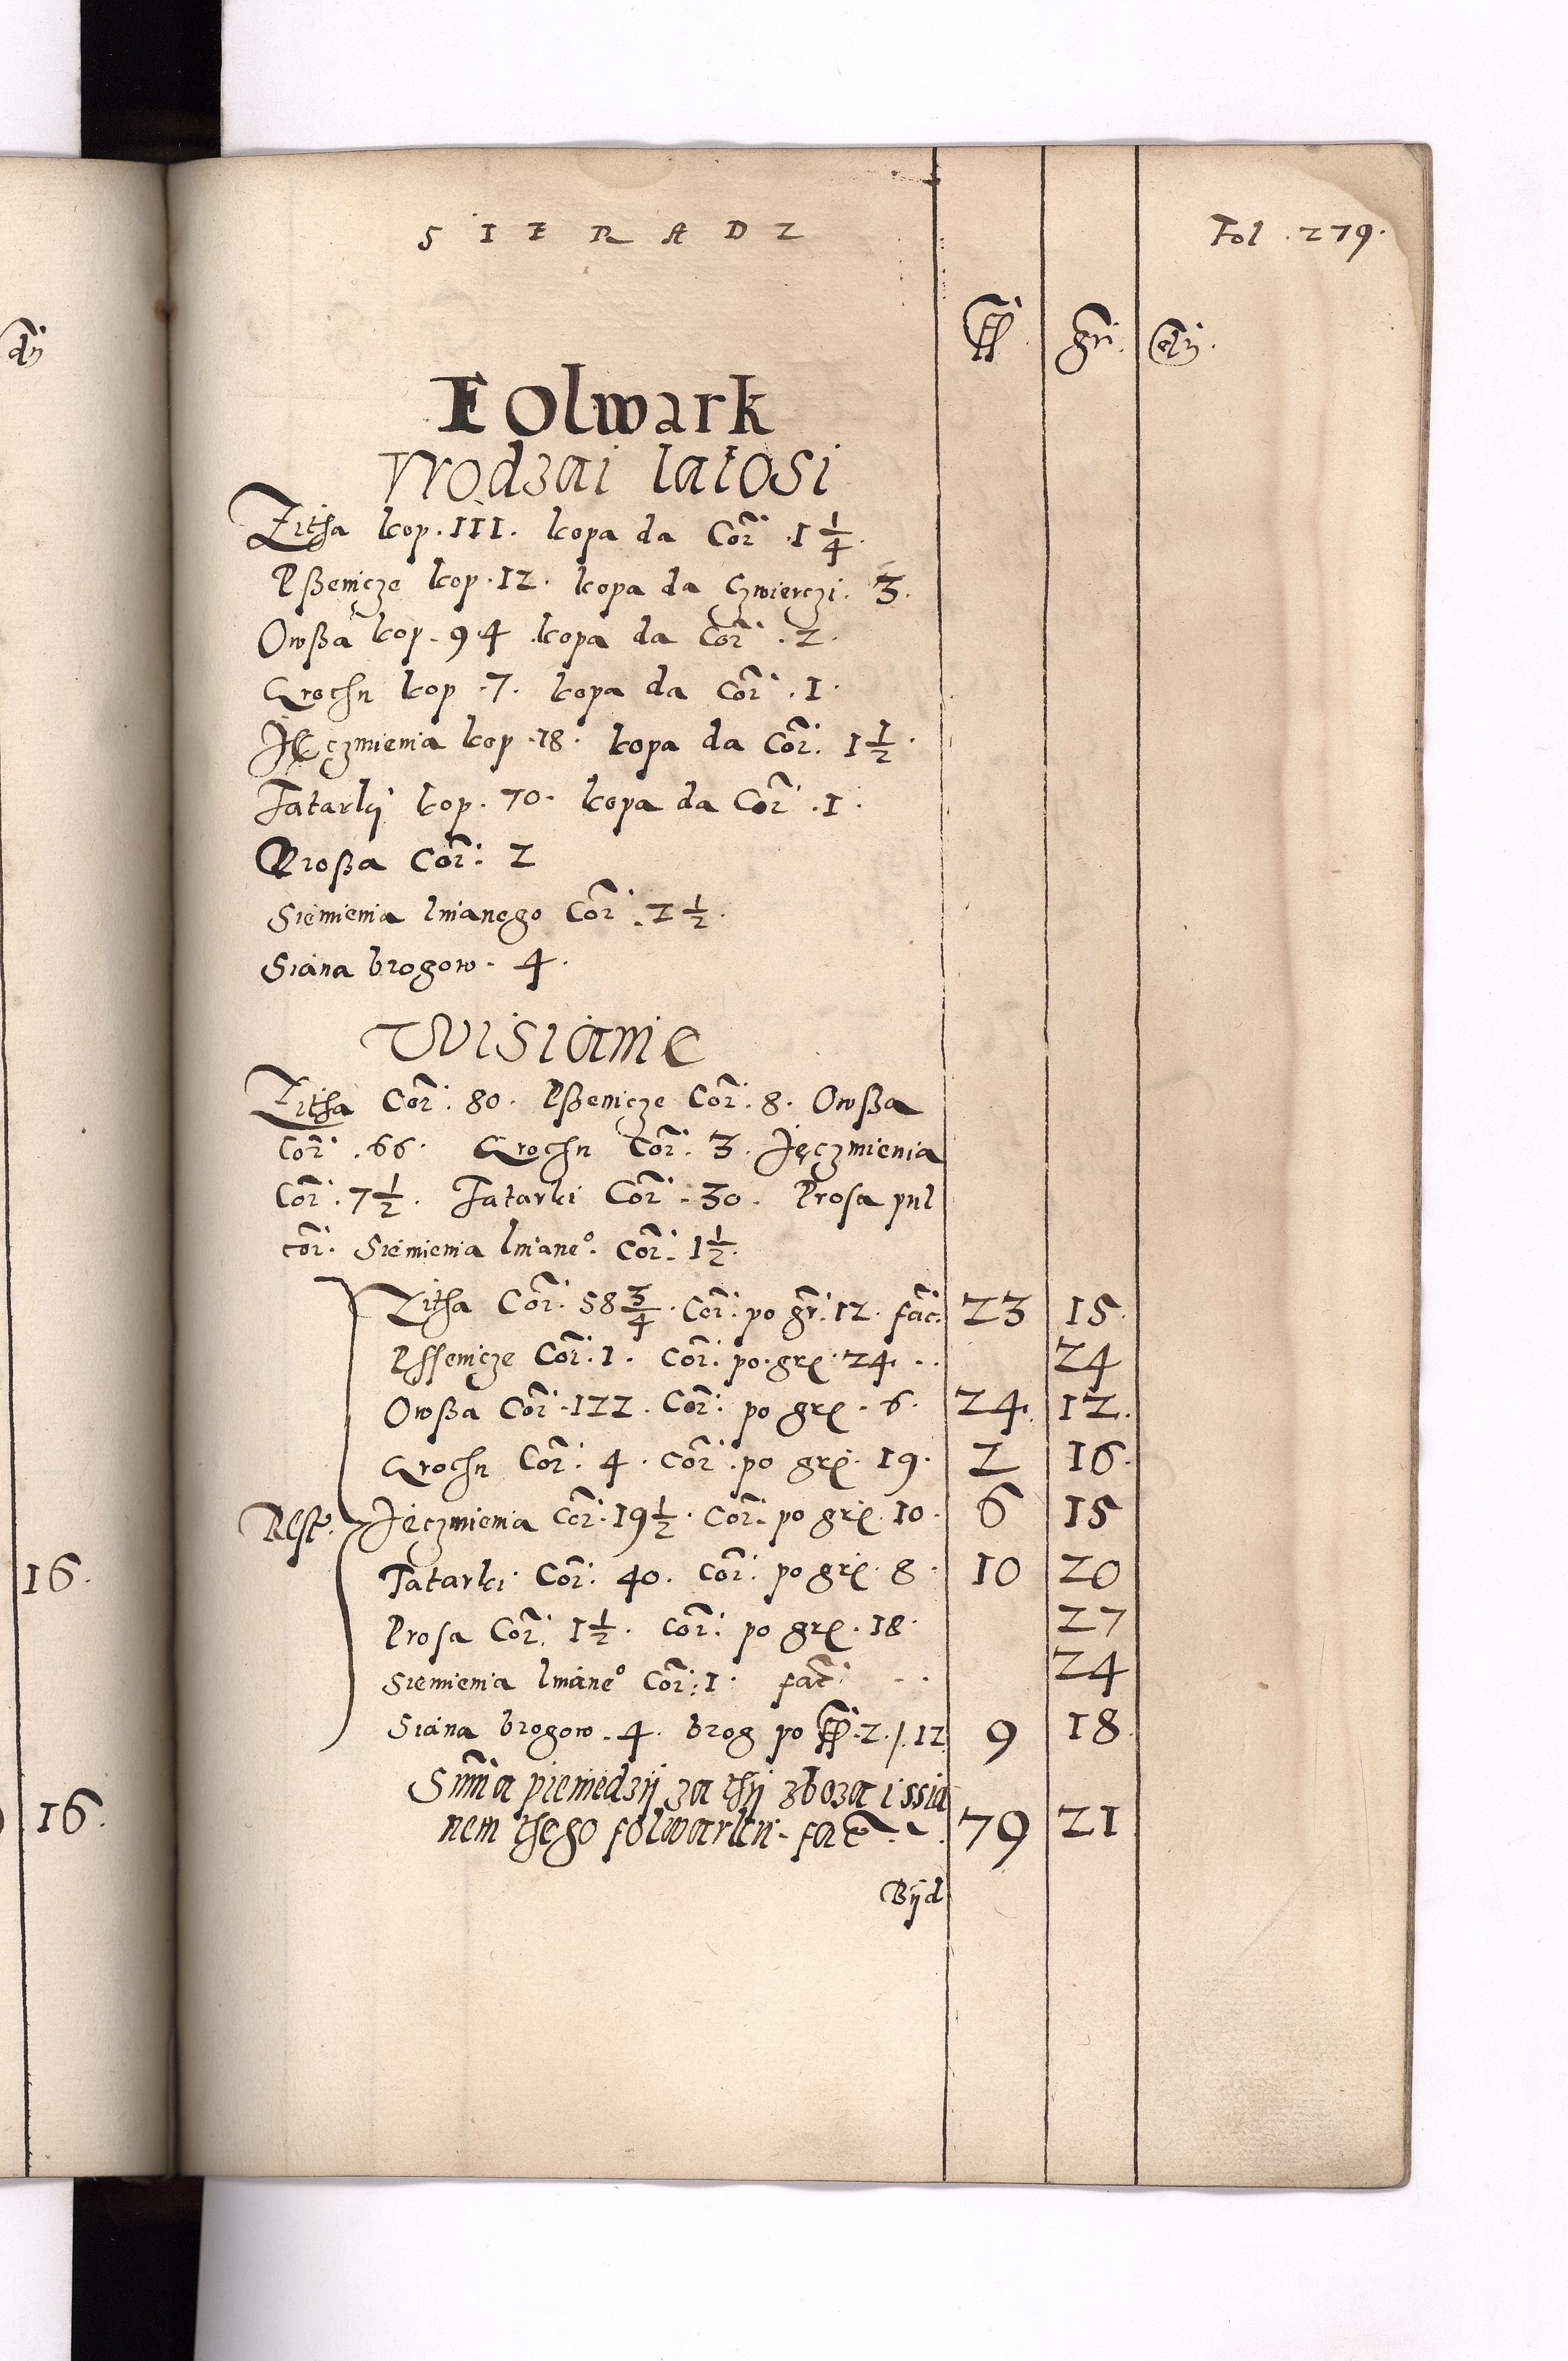 dij
16.
16.
SIERADZ
Fol. 279.
fl. gr. dñ.
Folwark
Vrodzai latosi
Zitha kop. 111. kopa da Cor. 1 1/4.
Pßenicze kop. 12. kopa da Czwierczi. 3.
Owßa kop. 94 kopa da Cor. 2.
Grochu kop. 7. kopa da Cor. 1.
Jęczmienia kop. 18. kopa da Cor. 1 1/2.
Tatarki kop. 70. kopa da Cor. 1.
Proßa Cor. 2
Siemienia lnianego Cor. 2 1/2.
Siana brogow. 4.
Wisianie
Zitha Cor. 80. Pßenicze Cor. 8. Owßa
Cor. 66. Grochu Cor. 3. Jęczmienia
Cor. 7 1/2. Tatarki Cor. 30. Prosa puł
cor. Siemienia lniane°. Cor. 1 1/2.
Zitha Cor. 58 3/4. Cor. po gr. 12. fac. 23 15.
Pssenicze Cor. 1. Cor. po. gr. 24. 24
Owßa Cor. 122. Cor. po gr. 6. 24. 12.
Grochu Cor. 4. Cor. po gr. 19. 2 16.
Rest. Jęczmienia Cor. 19 1/2. Cor. po gr. 10. 6 15
Tatarki Cor. 40. Cor. po gr. 8. 10 20
Prosa Cor. 1 1/2. Cor. po gr. 18. 27
Siemienia lniane° Cor. 1. fac. 24
Siana brogow. 4. brog po fl. 2. /. 12 9 18.
Suma pieniedzy za thy zboza i ssia
nem thego folwarku. fac. 79 21
Byd